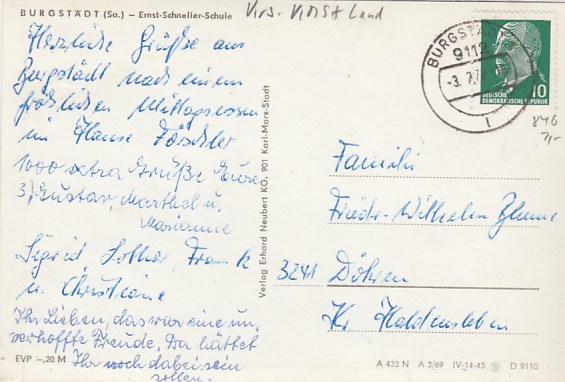 BURGSTÄDT (Sa.) – Ernst-Schneller-Schule
Land
Herzliche Grüße aus
Burgstädt nach einem
fröhlichen Mittagsessen
im Hause
1000 extra Grüße Eure
3, Gustav, Marthel u.
Marianne
Sigrid Lothar Frank
u. Christiane
Ihr Lieben, das war eine un,
verhoffte Freude, Da hättet
Ihr noch dabei sein
sollen.
EVP –,20 M
Verlag Erhard Neubert KG, 901 Karl-Marx-Stadt
BURGSTÄDT
9112
-3. 7.7
10
DEUTSCHE
DEMOKRATISCHE REPUBLIK
846
Familie
Friedr-Wilhelm Blume
3241 Döhren
Kr Haldensleben
A 433 N A 3/69 IV-14-45 D 9110